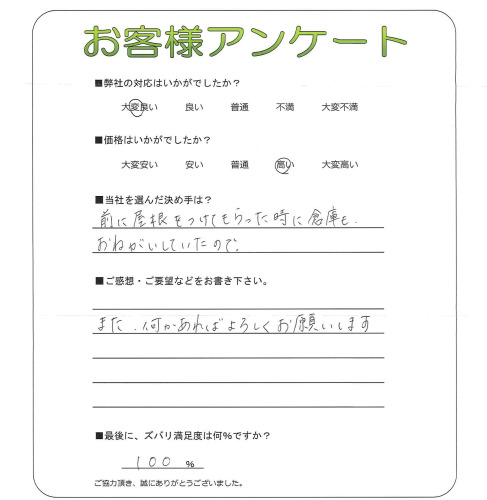 お客様アンケート
■弊社の対応はいかがでしたか？
大変良い 良い 普通 不満 大変不満
■価格はいかがでしたか？
大変安い 安い 普通 高い 大変高い
■当社を選んだ決め手は？
前に屋根をつけてもらった時に倉庫も.
おねがいしていたので.
■ご感想・ご要望などをお書き下さい。
また.何かあればよろしくお願いします
■最後に、ズバリ満足度は何%ですか？
100 %
ご協力頂き、誠にありがとうございました。